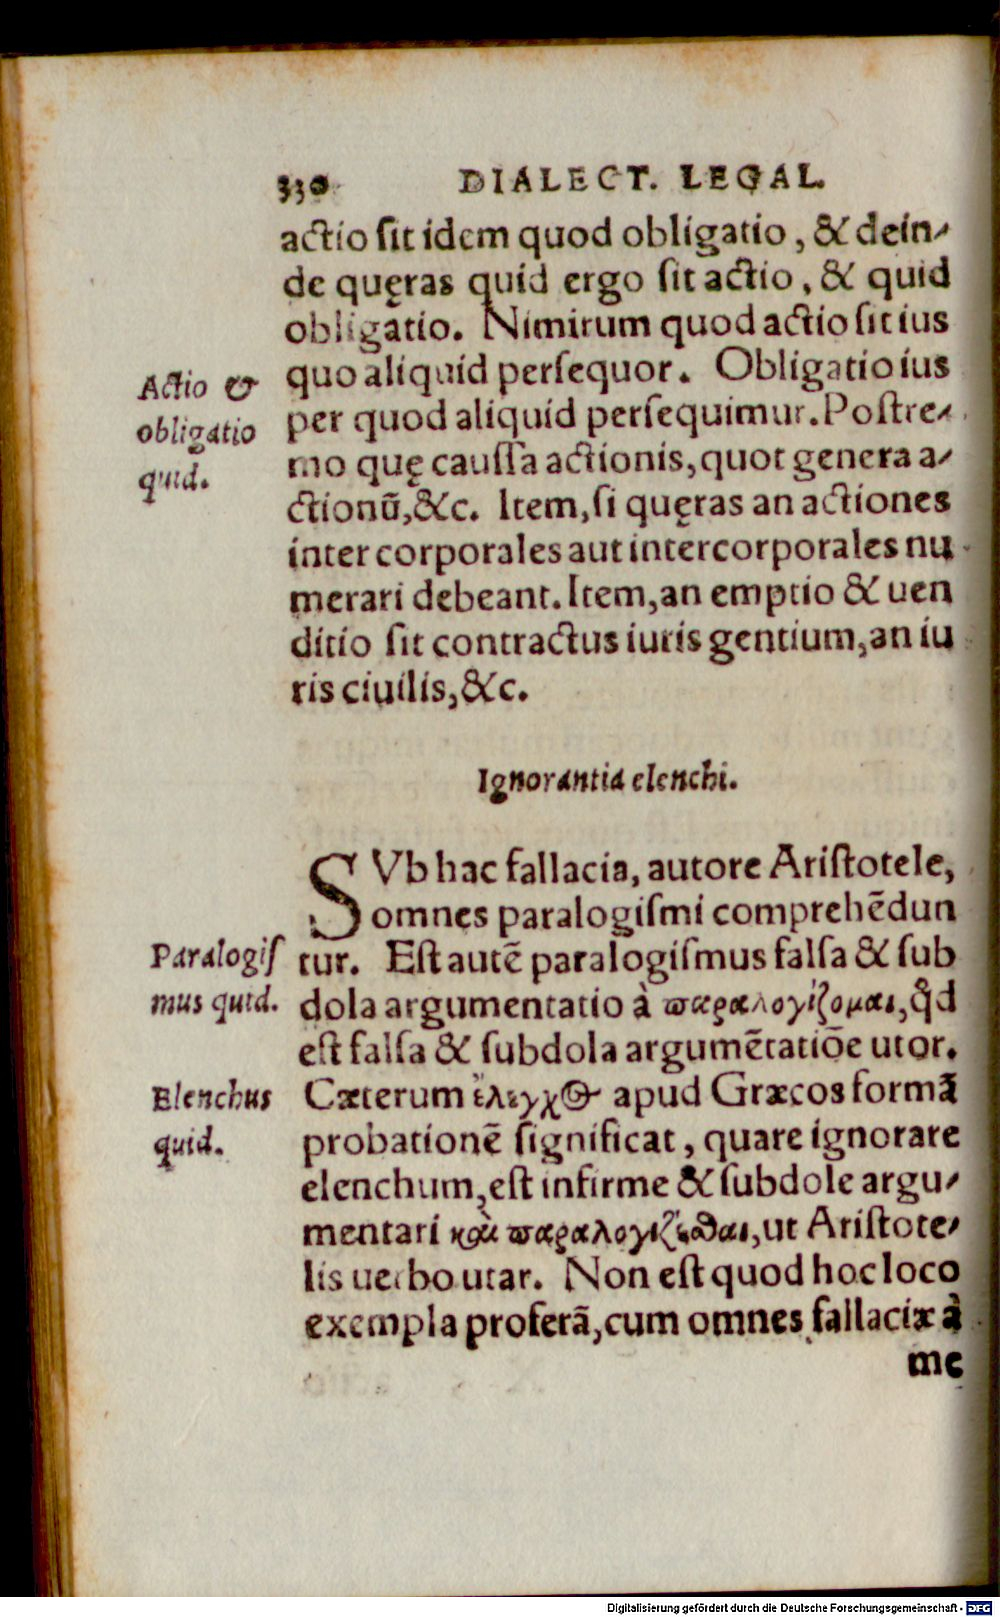 330 DIALECT. LEGAL.
actio ſit idem quod obligatio, & dein-
de quęras quid ergo ſit actio, & quid
obligatio. Nimirum quod actio ſit ius
quo aliquid perſequor. Obligatio ius
per quod aliquid perſequimur. Poſtre-
mo quę cauſſa actionis, quot genera a-
ctionū, &c. Item, ſi quęras an actiones
inter corporales aut intercorporales nu
merari debeant. Item, an emptio & uen
ditio ſit contractus iuris gentium, an iu
ris ciuilis, &c.
Actio &
obligatio
quid.
Ignorantia elenchi.
SVb hac fallacia, autore Ariſtotele,
omnes paralogiſmi comprehēdun
tur. Eſt autē paralogiſmus falſa & ſub
dola argumentatio à παραλογίζομαι, qd̛
eſt falſa & ſubdola argumētatiōe utor.
Cæterum ἔλεγχος apud Græcos formā
probationē ſignificat, quare ignorare
elenchum, eſt infirme & ſubdole argu-
mentari καὶ παραλογίζεσθαι, ut Ariſtote-
lis uerbo utar. Non eſt quod hoc loco
exempla proferā, cum omnes fallaciæ à
me
Paralogiſ
mus quid.
Elenchus
quid.
Digitalisierung gefördert durch die Deutsche Forschungsgemeinschaft - DFG